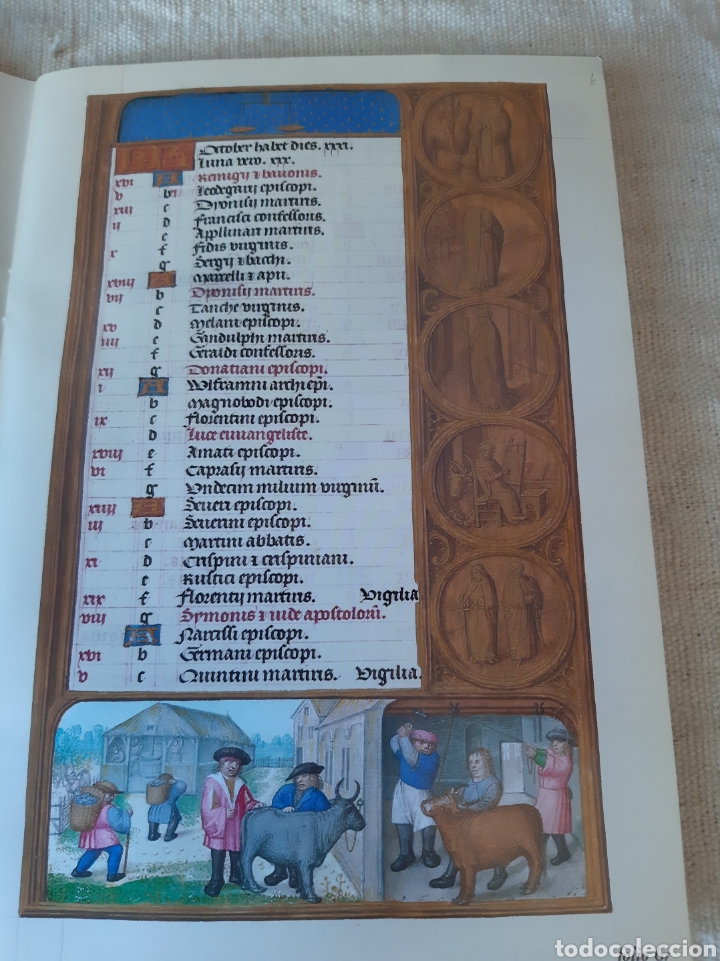 6
October habet dies. xxxi.
Luna vero. xxx.
xvi A Remigij & bavonis.
v b Leodegarij episcopi.
xiii c Dyonisij martiris.
ii d Francisci confessoris.
e Appllinari martiris.
x f Fidis virginis.
g Sergij & bachi.
xviii A Marcelli & apu.
vii b Dyonisij martiris.
c Tanche virginis.
xv d Melani episcopi.
iiii e Gandulphi martiris.
f Geraldi confessoris.
xii g Donatiani episcopi.
i A Wlframni archi epi.
b Magnobodi episcopi.
ix c Florentini episcopi.
d Luce euuangeliste.
xviii e Amati episcopi.
vi f Caprasij martiris.
g Vndecim milium virginum.
xiiii A Seueri episcopi.
iii b Seuerini episcopi.
c Martini abbatis.
xi d Crispini & crispiniani.
e Rustici episcopi.
xix f Florentij martiris. Vigilia
viii g Symonis & iude apostolorum.
A Narcissi episcopi.
xvi b Germani episcopi.
v c Quintini martiris. Vigilia.
todocoleccion.net